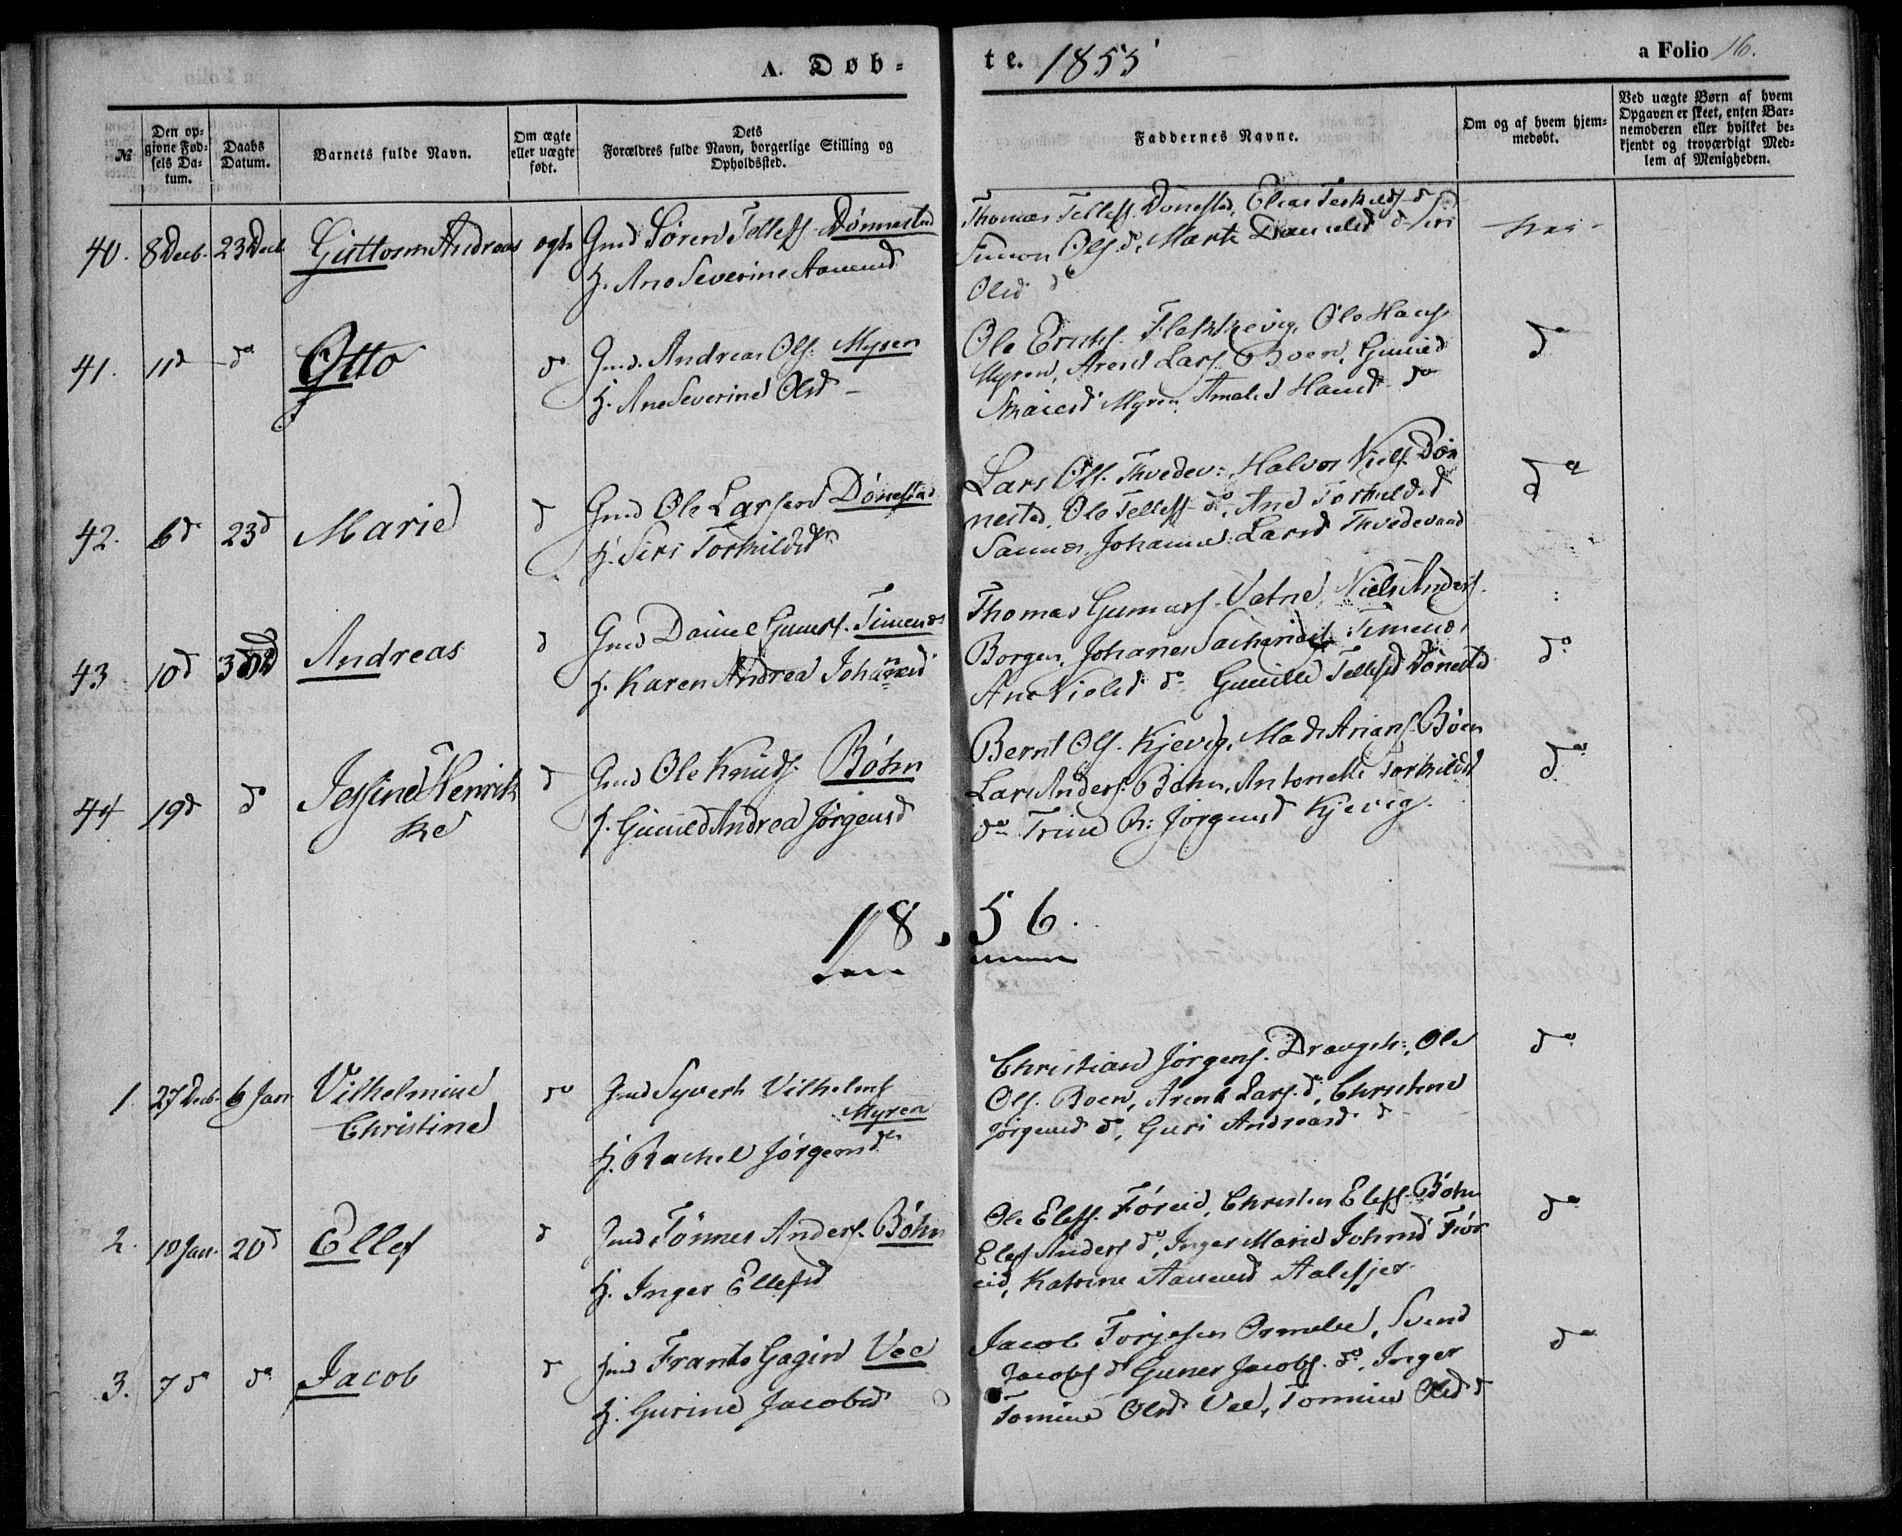 A. Døb-
te. 1855
a Folio 16.
№
Den op-
givne Fød-
sels Da-
tum.
Daabs
Datum.
Barnets fulde Navn.
Om ægte
eller uægte
født.
Dets
Forældres fulde Navn, borgerlige Stilling og
Opholdssted.
Faddernes Navne.
Om og af hvem hjem-
medøbt.
Ved uægte Børn af hvem
Opgaven er skeet, enten Bar-
nemoderen eller hvilket be-
kjendt og troværdigt Med-
lem af Menigheden.
40. 8 Decb. 23 Decb Guttorm Andreas ægte
Gmd Søren Tellefs. Dønnestad
H. Ane Severine Aanensd
Thomas Tellefs. Dønestad, Elias Terkelds do
Simon Ols. do, Marte Danielsd do Siri
Olsd do
Nei
41. 11 d do Otto do
Gmd. Andreas Ols. Myren
H. Ane Severine Olsd
Ole Erichs. Flakkevig, Ole Hans.
Myren, Arent Lars. Boen, Guned
Myren, Amalie Hansd do
do
42. 6 d 23 d Marie d
Gmd Ole Larsen Dønestad
H. Siri Torkildsdr
Lars Ols. Thvedev:, Halvor Niels. Døn
nestad, Ole Tellefs do, Ane Torkildsd
Saunes, Johanne Larsd Thvedevand
do
43 10 d Andreas d
Gmd Daniel Guners. Timenes
H. Karen Andrea Johannesd
Thomas Gunnars. Vatne, Niels Anders.
Borgen, Johanes Sacharias Timenes,
Ane Nielsd do Gunille Tellefsd Dønestd
do
44 19 d do Jessine Henrik
ke d
Gmd Ole Knuds. Bøhn
H. Guned Andrea Jørgensd
Bernt Ols. Kjevig, Mads Arians. Bøen
Lars Anders. Bøhn, Antonette Torkildsd
do Trine B: Jørgensd Kjevig.
do
1856.
1 27 Decb. 6 Jan Vilhelmine
Christine do
Gmd Syvert Vilhelms
Myren
H. Rachel Jørgensdr
Christian Jørgens. Draugsh:, Ole
Ols. Boen, Arent Lars. do, Christine
Jørgensd do, Guri Andreasd d
do
2. 10 Jan. 20 d Ellef d
Gmd Tønnes Anders. Bøhn
H. Inger Ellefsd
Ole Elefs. Føreid, Christen Elefs. Bøhn
Elef Anders do, Inger Marie Johnsd Fiør
eid, Katrine Aanensd Aalefjer
do
3. 7 do do Jacob d
Gmd Frants Gagin Vee
H. Gurine Jacobsd
Jacob Torjesen Ormelie, Svend
Jacobs do Guner Jacobs. do, Inger
Tomine Olsd Vee, Tomine Olsd d
do